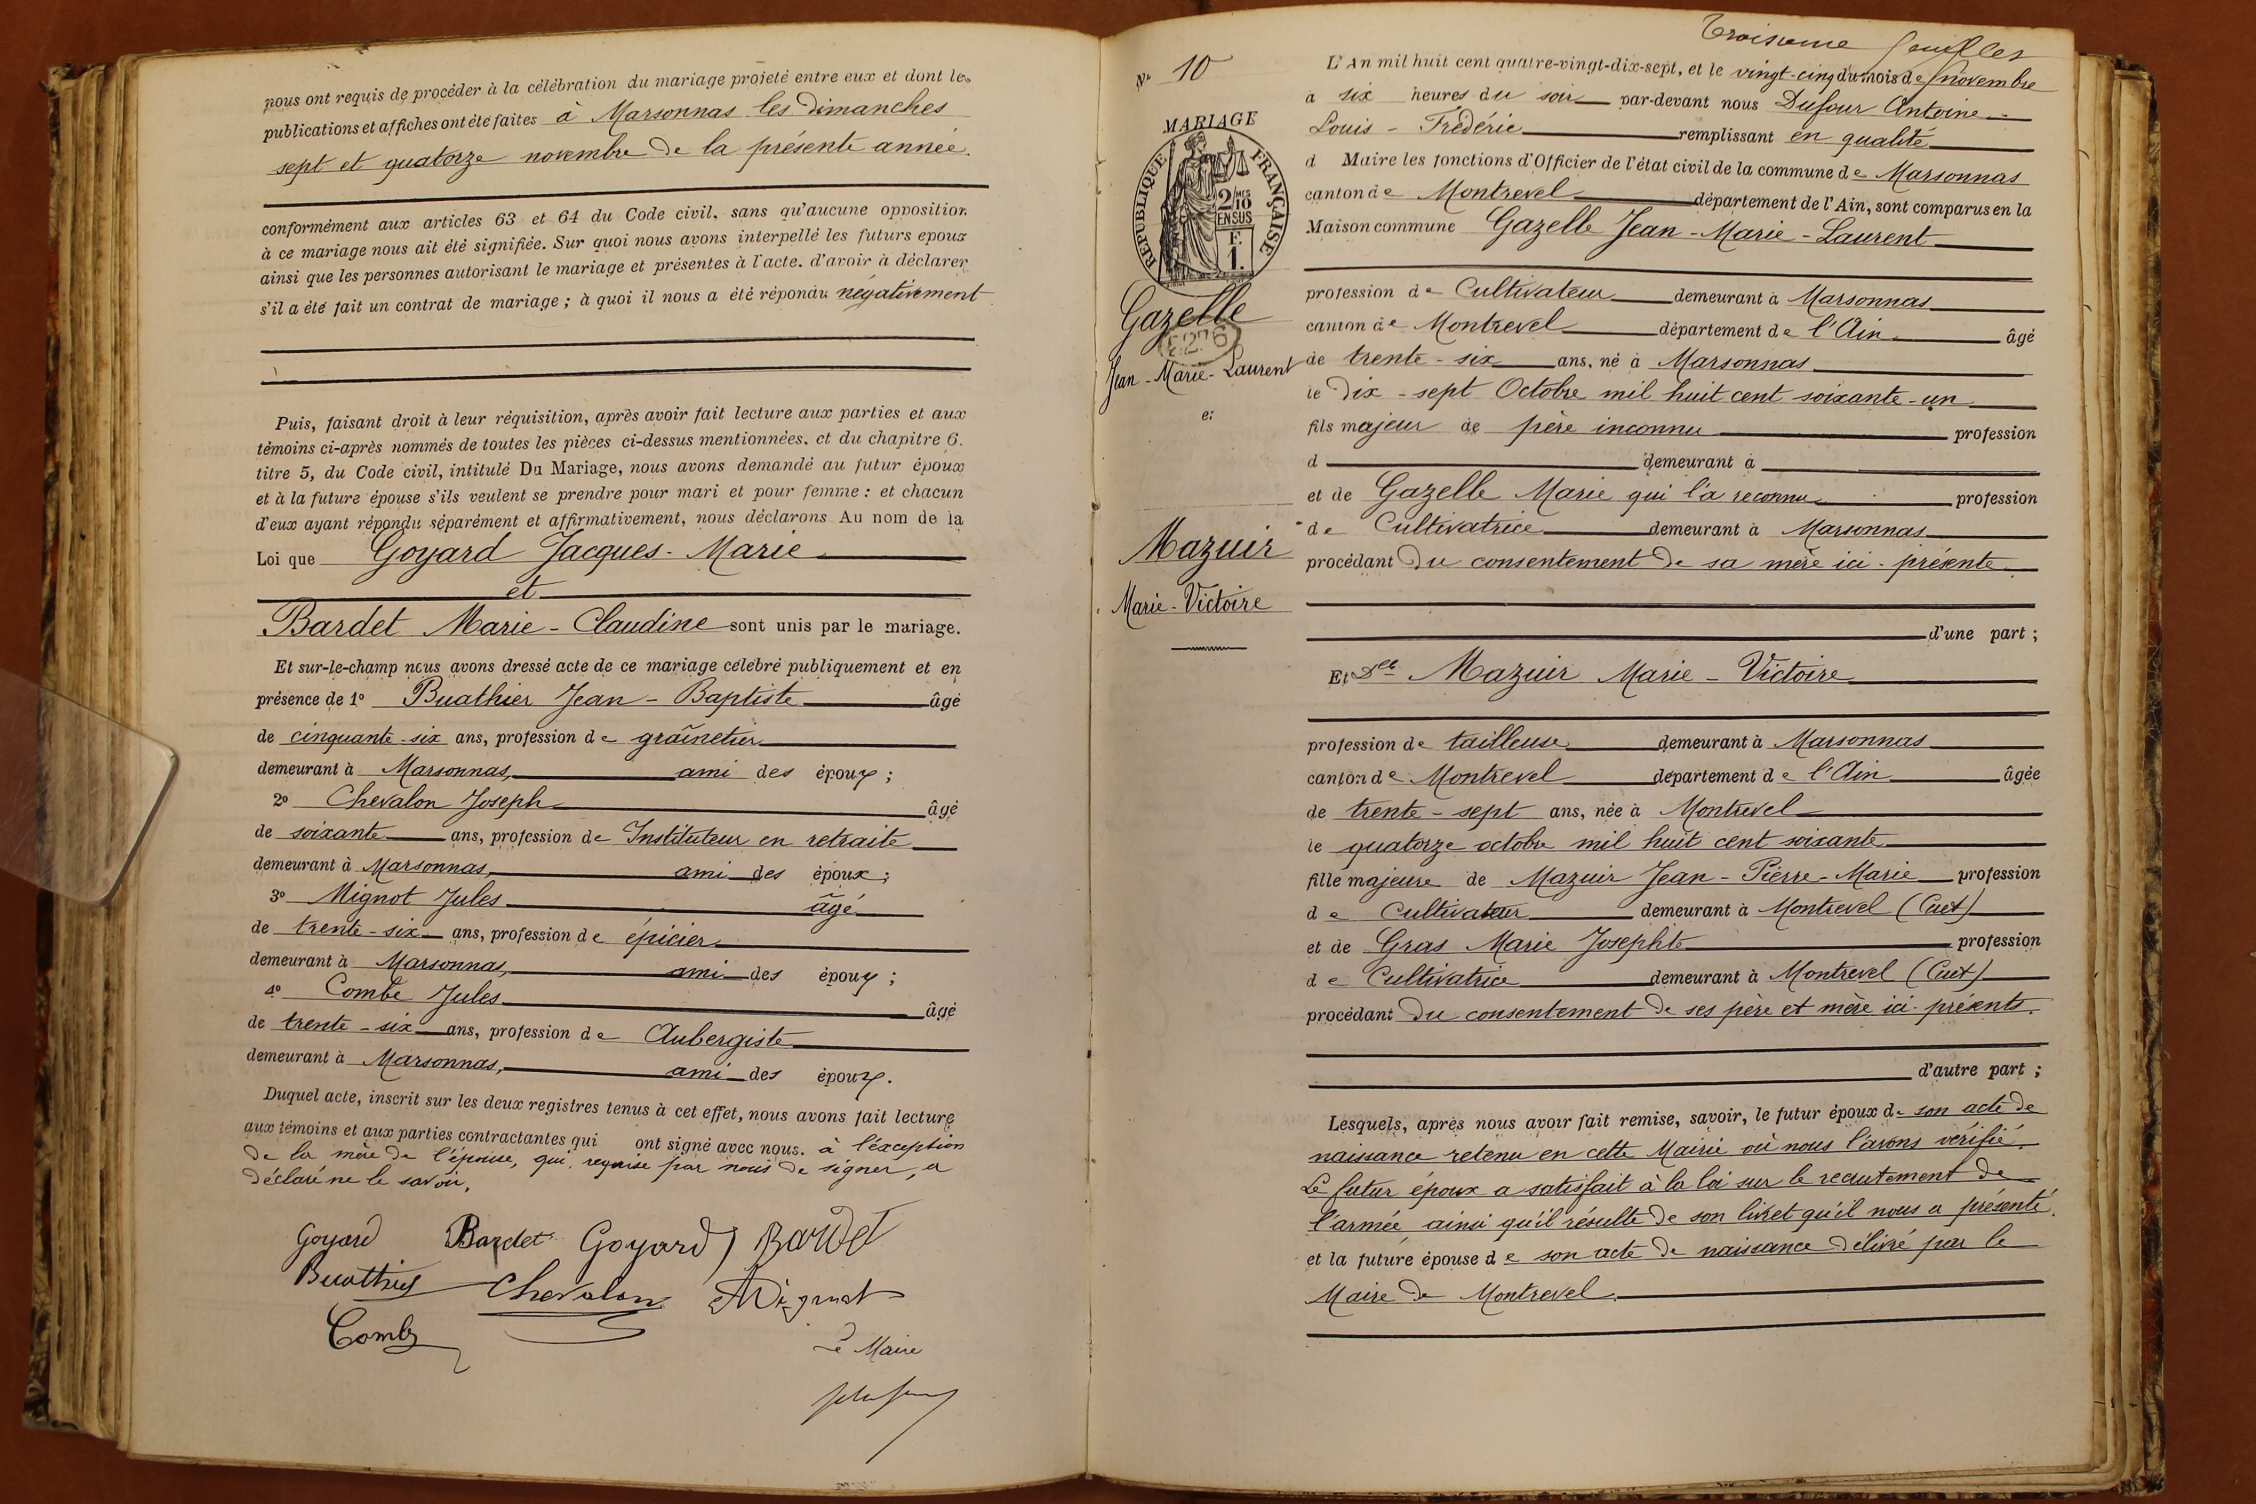 nous ont requis de procéder à la célébration du mariage projeté entre eux et dont les
publications et affiches ont été faites à Marsonnas les dimanches
sept et quatorze novembre de la présente année.
conformément aux articles 63 et 64 du Code civil, sans qu'aucune opposition
à ce mariage nous ait été signifiée. Sur quoi nous avons interpellé les futurs epoux
ainsi que les personnes autorisant le mariage et présentes à l'acte. d'avoir à déclarer
s'il a été fait un contrat de mariage ; à quoi il nous a été répondu négativement
Puis, faisant droit à leur réquisition, après avoir fait lecture aux parties et aux
témoins ci-après nommés de toutes les pièces ci-dessus mentionnées. et du chapitre 6.
titre 5, du Code civil, intitulé Du Mariage, nous avons demandé au futur époux
et à la future épouse s'ils veulent se prendre pour mari et pour femme : et chacun
d'eux ayant répondu séparément et affirmativement, nous déclarons Au nom de la
Loi que Goyard Jacques-Marie
et
Bardet Marie-Claudine sont unis par le mariage.
Et sur-le-champ nous avons dressé acte de ce mariage célébré publiquement et en
présence de 1º Buathier Jean-Baptiste âgé
de cinquante-six ans, profession de graînetier
demeurant à Marsonnas, ami des époux ;
2º Chevalon Joseph âgé
de soixante ans, profession de Instituteur en retraite
demeurant à Marsonnas, ami des époux ;
3º Mignot Jules âgé
de trente-six ans, profession de épicier
demeurant à Marsonnas, ami des époux ;
4º Combe Jules âgé
de trente-six ans, profession de Aubergiste
demeurant à Marsonnas, ami des époux.
Duquel acte, inscrit sur les deux registres tenus à cet effet, nous avons fait lecture
aux témoins et aux parties contractantes qui ont signé avec nous. à l'exception
de la mère de l'épouse, qui, requise par nous de signer, a
déclaré ne le savoir.
Goyard Bardet Goyard J Bardet
Buathier Chevalon Mignot
Combe
Le Maire
Troisième feuillet
Nº 10
MARIAGE
RÉPUBLIQUE FRANÇAISE
2/10 MES
EN SUS
F.
1.
Gazelle
Jean-Marie-Laurent
et
Mazuir
Marie-Victoire
L'An mil huit cent quatre-vingt-dix-sept, et le vingt-cinq du mois de novembre
à six heures du soir par-devant nous Dufour Antoine-
Louis-Frédéric remplissant en qualité
d Maire les fonctions d'Officier de l'état civil de la commune de Marsonnas
canton de Montrevel département de l'Ain, sont comparus en la
Maison commune Gazelle Jean-Marie-Laurent
profession de Cultivateur demeurant à Marsonnas
canton de Montrevel département de l'Ain âgé
de trente-six ans, né à Marsonnas
le dix-sept Octobre mil huit cent soixante-un
fils majeur de père inconnu profession
d demeurant à
et de Gazelle Marie qui l'a reconnu profession
de Cultivatrice demeurant à Marsonnas
procédant du consentement de sa mère ici-présente
d'une part ;
Et Dlle Mazuir Marie-Victoire
profession de tailleuse demeurant à Marsonnas
canton de Montrevel département de l'Ain âgée
de trente-sept ans, née à Montrevel
le quatorze octobre mil huit cent soixante
fille majeure de Mazuir Jean-Pierre-Marie profession
de Cultivateur demeurant à Montrevel (Cuet)
et de Gras Marie Josephte profession
de Cultivatrice demeurant à Montrevel (Cuet)
procédant du consentement de ses père et mère ici-présents.
d'autre part ;
Lesquels, après nous avoir fait remise, savoir, le futur époux de son acte de
naissance retenu en cette Mairie où nous l'avons vérifié.
Le futur époux a satisfait à la loi sur le recrutement de
l'armée ainsi qu'il résulte de son livret qu'il nous a présenté.
et la future épouse de son acte de naissance délivré par le
Maire de Montrevel.